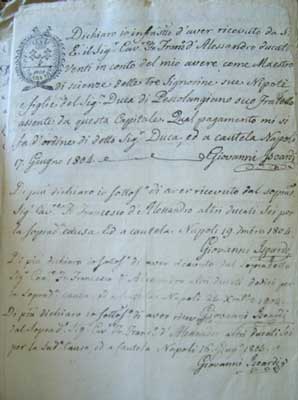 Dichiaro io infratto d'aver ricevuto da S.
E. il Sig.r Cav.e Fr. Franc.o d'Alessandro ducati
Venti in conto del mio avere come Maestro
di scienze delle tre Signorine sue Nipoti
e figlie del Sig.r Duca di Pescolanciano suo Fratello
assente da questa Capitale. Qual pagamento mi si
fa d'ordine di detto Sig.r Duca, ed a cautela Napoli
17. Giugno 1804.
Giovanni
Di più dichiaro io sottos.o di aver ricevuto dal soprad.o
Sig.r Cav.e Fr. Francesco d'Alessandro altri ducati Sei per
la soprad.a causa, ed a cautela. Napoli 19. 1804.
Giovanni
Di più dichiaro io sottos.o di aver ricevuto dal Sopradetto
Sig.r Cav.e Fr. Francesco d'Alessandro altri ducati dodici per
la soprad.a causa, ed a cautela Napoli 24. 1804.
Giovanni
Di più dichiaro io sottos.o d'aver ricev.
dal Soprad.o Sig.r Cav.e Fr. Franc.o d'Alessandro altri ducati Sei
per la Sud.a causa, ed a cautela Napoli 16. Giug.o 1805.
Giovanni